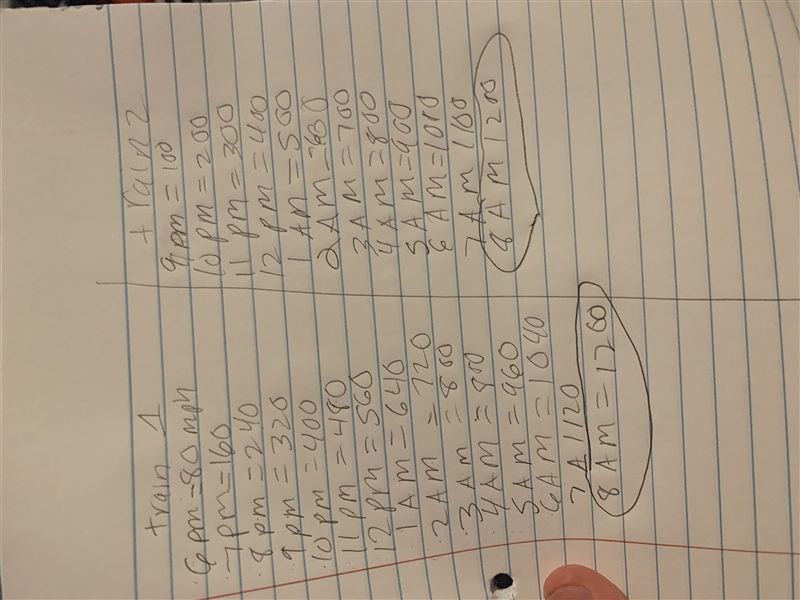 train 1
6 pm=80 mph
7pm=160
8 pm=240
9 pm=320
10 pm=400
11 pm=480
12 pm=560
1 AM=640
2 AM=720
3 AM=800
4 AM=
5 AM=960
6 AM=1040
7 A 1120
8 AM=1200
train 2
9pm=100
10 pm=200
11 pm=300
12 pm=400
1 AM=500
2 AM=
3 AM=700
4 AM=800
5 AM=900
6 AM=1000
7 AM 1100
8 AM 1200